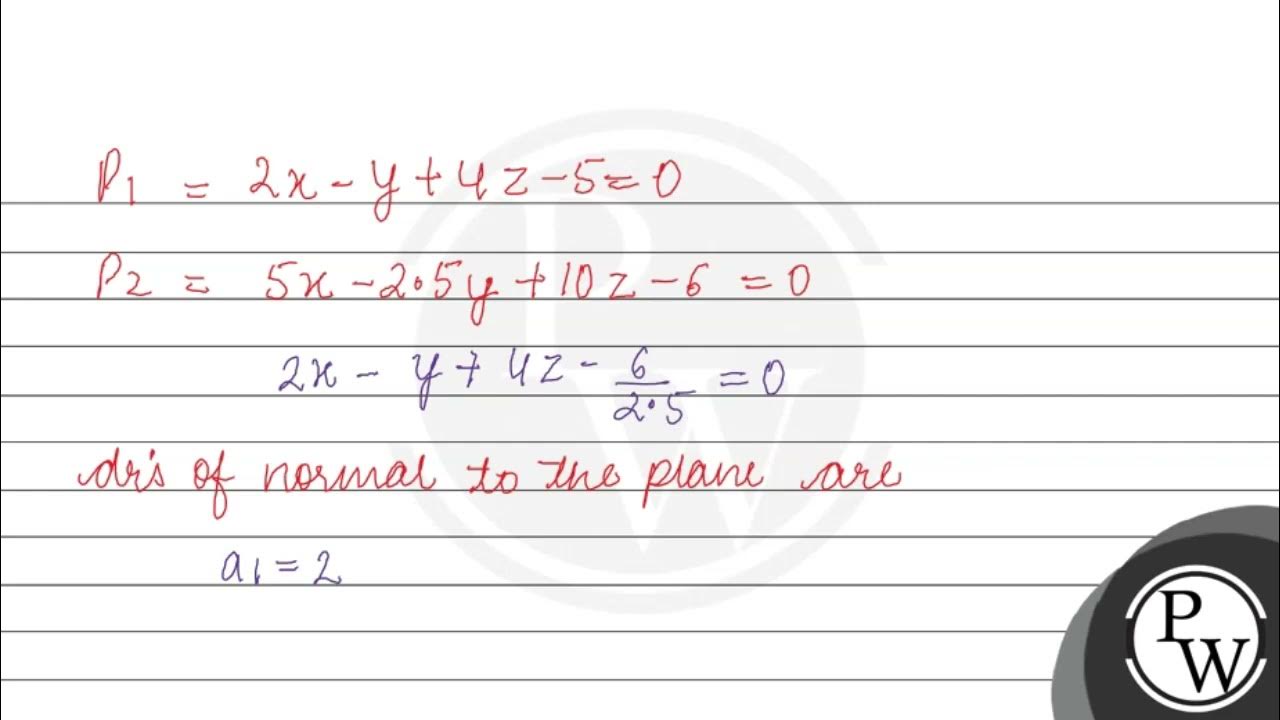 P1 = 2x - y + 4z - 5 = 0
P2 = 5x - 2.5y + 10z - 6 = 0
2x - y + 4z - 6/2.5 = 0
dr's of normal to the plane are
a1 = 2
PW
PW